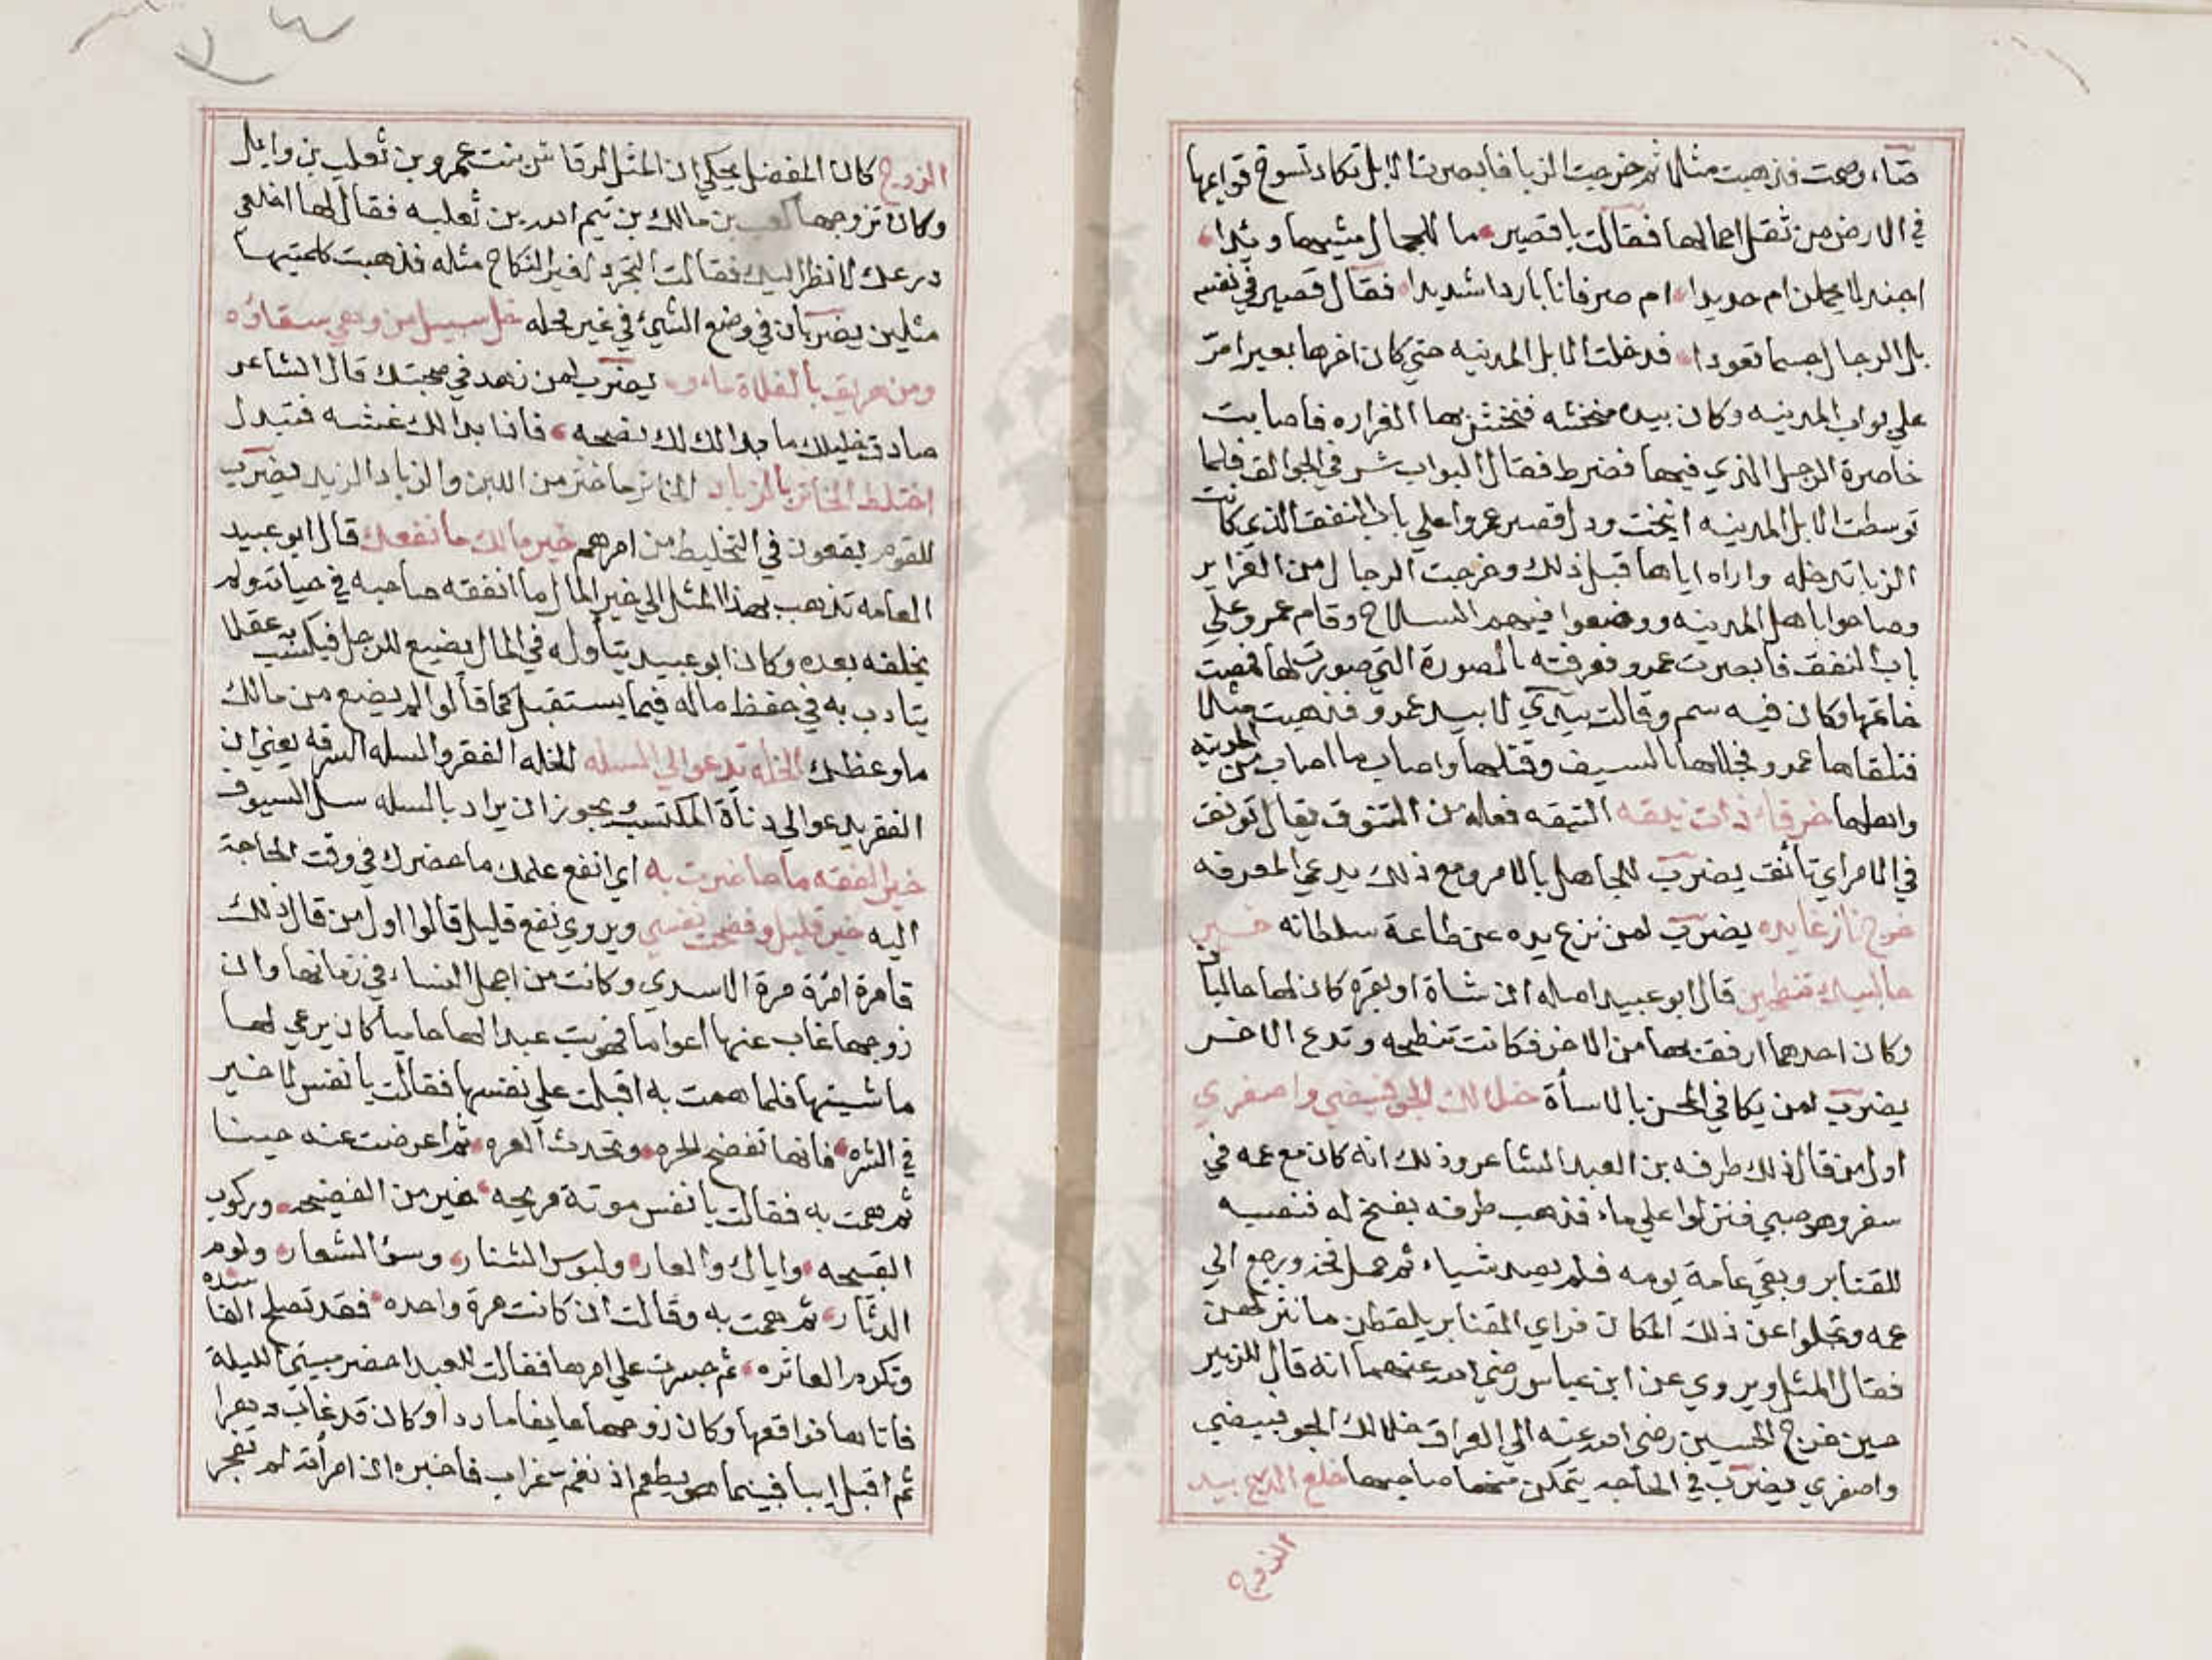 قتاء وصمت فذهبت مثلا ثم خرجت الزبا فابصرت الابل تكاد تسوخ قوايمها
في الارض من ثقل احمالها فقالت يا قصير ما للجمال مشيها وئيدا
اجندلا يحملن ام حديدا ام صرفانا باردا شديدا فقال قصير في نفسه
بل الرجال جسما قعودا فدخلت الابل المدينه حتي كان اخرها بعيرا مر
علي بواب المدينه وكان بيده منخشه فنخش بها الغراره فاصابت
خاصرة الرجل الذي فيها فضرط فقال البواب شر في الجوالق فلما
توسطت الابل المدينه انيخت ودل قصير عمروا علي باب النفق الذي كانت
الزبا تدخله واراه اياها قبل ذلك وخرجت الرجال من الغراير
وصاحوا باهل المدينه ووضعوا فيهم السلاح وقام عمرو علي
باب النفق فابصرت عمرو فعرفته بالصورة التي صورت لها فمصت
خاتمها وكان فيه سم وقالت بيدي لا بيد عمرو فذهبت مثلا
فتلقاها عمرو فجللها بالسيف وقتلها واصاب ما اصاب من المدينه
واهلها خرقاء ذات نيقه النيقه فعله من التنوق يقال تونق
في الامر اي تأنق يضرب للجاهل بالامر ومع ذلك يدعي المعرفه
خرج نازعا يده يضرب لمن نزع يده عن طاعة سلطانه خير
حالبيك تنطحين قال ابو عبيد اصله ان شاة او بقره كان لها حالبان
وكان احدهما ارفق بها من الاخر فكانت تنطحه وتدع الاخر
يضرب لمن يكافي المحسن بالاسأة خلا لك الجو فبيضي واصفري
اول من قال ذلك طرفه بن العبد الشاعر وذلك انه كان مع عمه في
سفر وهو صبي فنزلوا علي ماء فذهب طرفه بفخ له فنصبه
للقنابر وبقي عامة يومه فلم يصد شياء ثم حمل فخه ورجع الي
عمه وتحلوا عن ذلك المكان فراي القنابر يلقطن ما نثر لهن
فقال المثل ويروي عن ابن عباس رضي الله عنهما انه قال للزبير
حين خرج الحسين رضي الله عنه الي العراق خلا لك الجو فبيضي
واصفري يضرب في الحاجه يتمكن منها صاحبها خلع الدرع بيد
الزوج
الزوج كان المفضل يحكي ان المثل لرقاش بنت عمرو بن ثعلب بن وايل
وكان تزوجها كعب بن مالك بن تيم الله بن ثعلبه فقال لها اخلعي
درعك لانظر اليك فقالت التجرد لغير النكاح مثله فذهبت كلمتها
مثلين يضربان في وضع الشيء في غير محله خل سبيل من وهي سقاؤه
ومن هريق بالفلاة ماءه يضرب لمن زهد في صحبتك قال الشاعر
صادق خليلك ما بدا لك نصحه فاذا بدا لك غشه فتبدل
اختلط الخاثر بالزباد الخاثر ما خثر من اللبن والزباد الزبد يضرب
للقوم يقعون في التخليط من امرهم خير مالك ما نفعك قال ابو عبيد
العامه تذهب بهذا المثل الي خير المال ما انفقه صاحبه في حياته ولم
يخلفه بعده وكان ابو عبيد يتأوله في المال يضيع للرجل فيكسب به عقلا
يتادب به في حفظ ماله فيما يستقبل كما قالوا لم يضع من مالك
ما وعظك الخله تدعوا الي السله الخله الفقر والسله السرقه يعني ان
الفقر يدعوا الي دنأة المكتسب ويجوز ان يراد بالسله سل السيوف
خير الفقه ما حاضرت به اي انفع علمك ما حضرك في وقت الحاجة
اليه خير قليل وفضحت نفسي ويروي نفع قليل قالوا اول من قال ذلك
فاقرة امرة مرة الاسدي وكانت من اجمل النساء في زمانها وان
زوجها غاب عنها اعواما فهويت عبدا لها حاميا كان يرعي لها
ماشيتها فلما همت به اقبلت علي نفسها فقالت يا نفس لا خير
في الشره فانها تفضح الحره وتحدث العره ثم اعرضت عنه حينا
ثم همت به فقالت يا نفس موتة مريحه خير من الفضيحه وركوب
القبيحه واياك والعار ولبوس الشنار وسؤ الشعار ولوم
الدثار ثم همت به وقالت ان كانت مرة واحده فقد تصلح الفاسده
وتكرم العاثره ثم جسرت علي امرها فقالت للعبد احضر مبيتي الليلة
فاتاها فواقعها وكان زوجها عايفا ماردا وكان قد غاب دهرا
ثم اقبل ايبا فبينما هو يطعم اذ نغم غراب فاخبره ان امرأته لم تفجر